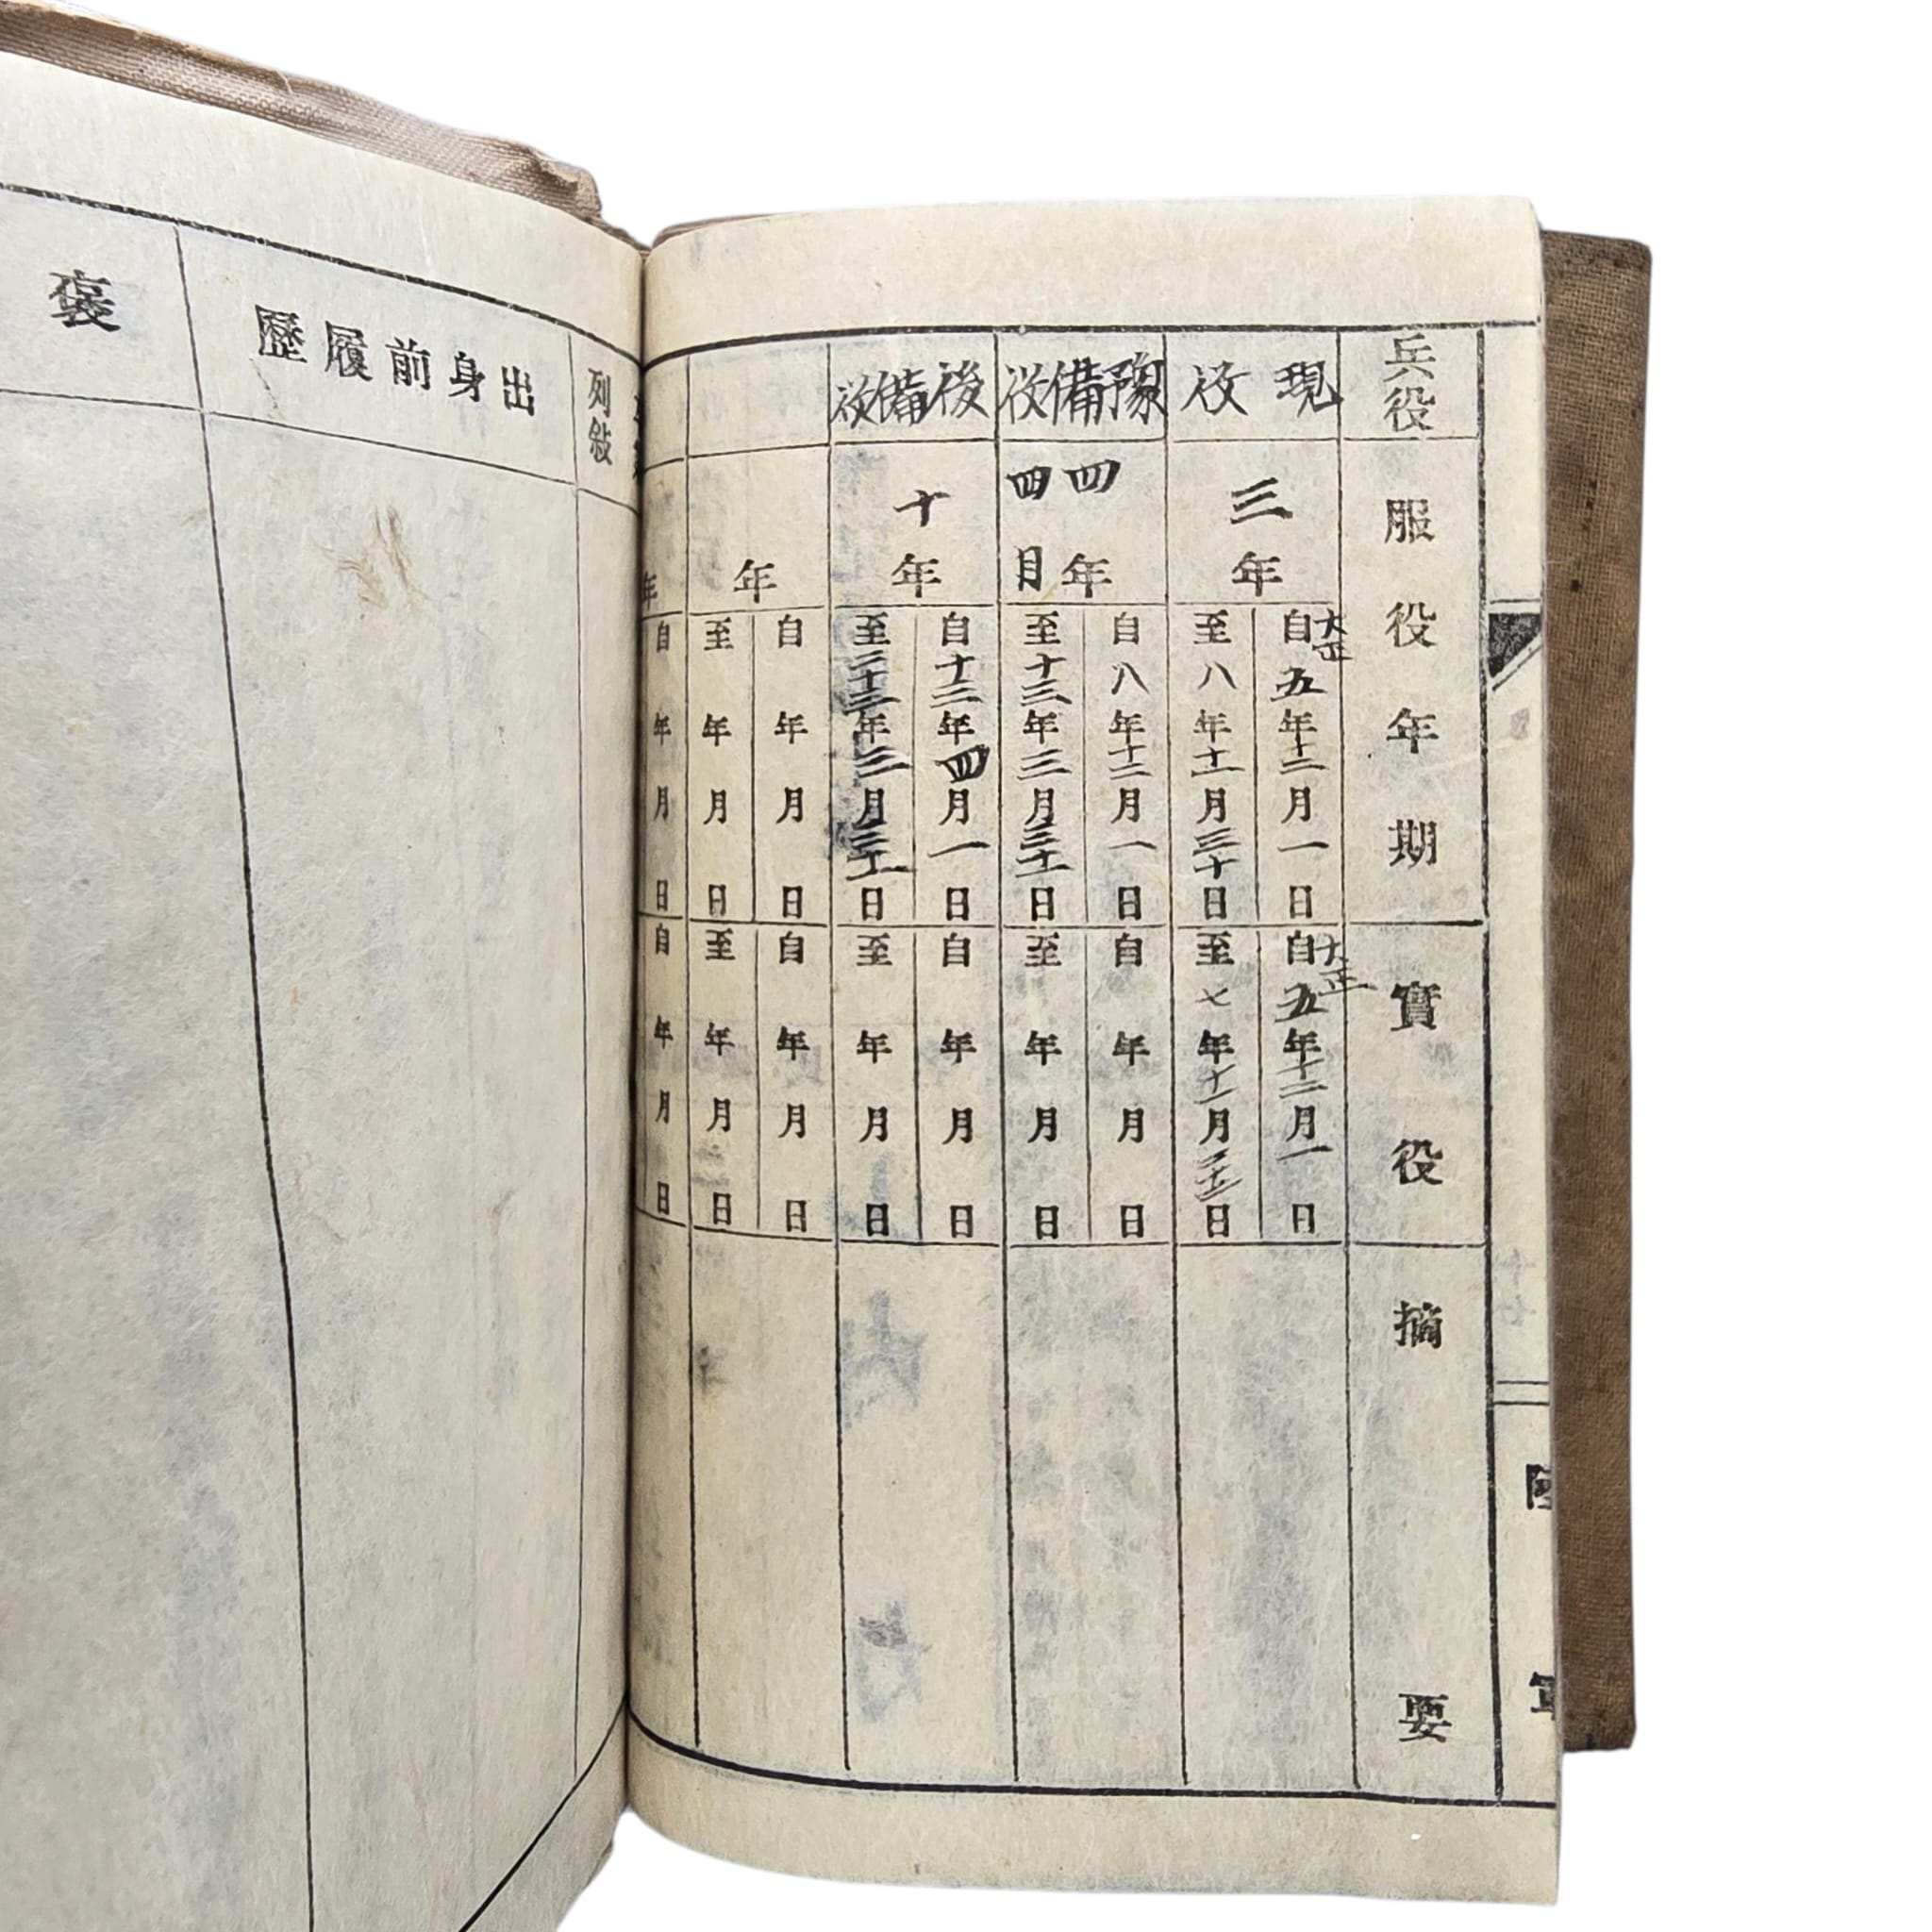 兵役
服役年期
實役
摘要
現役
三年
自大正五年十二月一日
至八年十一月三十日
自大正五年十二月一日
至七年十一月日
豫備役
四年
四月
自八年十二月一日
至十三年三月三十一日
自年月日
至年月日
後備役
十年
自十三年四月一日
至二十三年三月三十一日
自年月日
至年月日
年
自年月日
至年月日
自年月日
至年月日
年
自年月日
自年月日
列敍
出身前履歷
褒